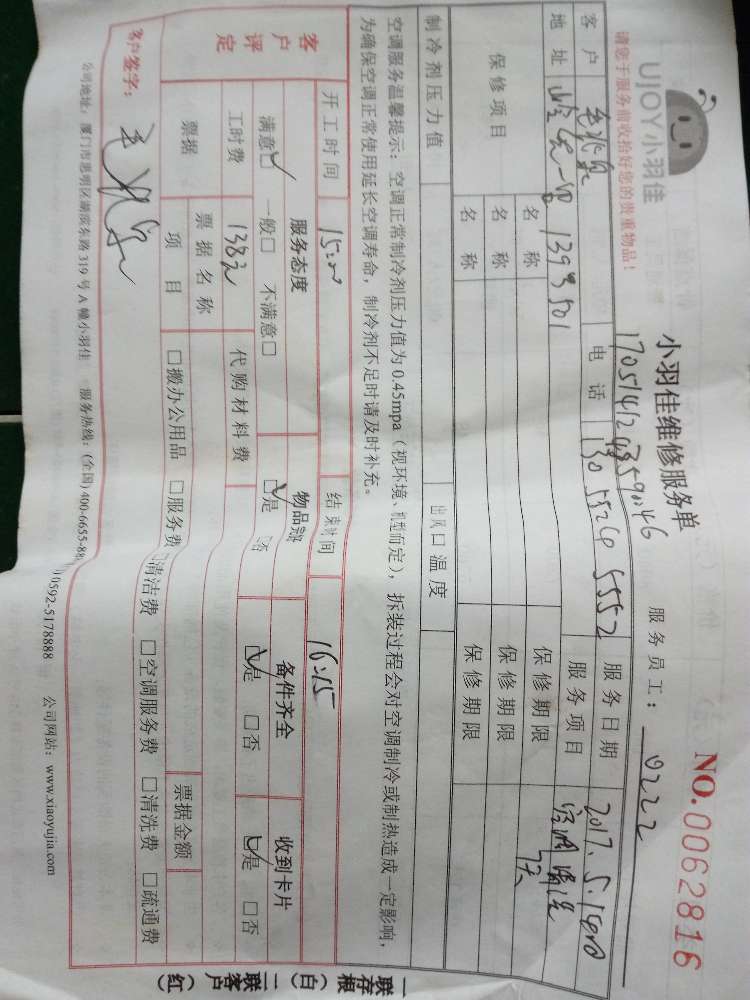 UJOY小羽佳
请您于服务前收拾好您的贵重物品！
小羽佳维修服务单
NO.0062816
服务员工：0222
客户
电话 130 5526 5552
服务日期 2017.5.15
地址
1399 501
服务项目 空调清洗
保修项目
名称
保修期限
名称
保修期限
名称
保修期限
制冷剂压力值
出风口温度
空调服务温馨提示：空调正常制冷剂压力值为0.45mpa（视环境、机型而定），拆装过程会对空调制冷或制热造成一定影响，
为确保空调正常使用延长空调寿命，制冷剂不足时请及时补充。
开工时间 15:00
结束时间 16:15
客户评定
服务态度
备件齐全
收到卡片
满意☑ 一般□ 不满意□
☑是 □否
☑是 □否
☑是 □否
工时费 138元
代购材料费
票据
票据名称
票据金额
项目
□搬办公用品 □服务费 □清洁费 □空调服务费 □清洗费 □疏通费
客户签字：
公司地址：厦门市思明区湖滨东路319号A幢小羽佳
服务热线：(全国)400-6655-88
0592-5178888
公司网站：www.xiaoyujia.com
一联存根（白） 二联客户（红）